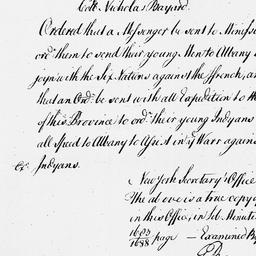 Coll. Nicholas Bayard.
Ordered that a Messenger be sent to Minisin
ordr. them to send their young Men to Albany
joyn with the Six Nations against the ffrench, an
that an Ordr. be sent with all Expedition to
of this Province to ordr. their young Indyans
all Speed to Albany to Assist in ye Warr against
Indyans.
New York Secretary's Office
The above is a true copy
in this Office, in Lib Minute
1683
1688 page — Examined By